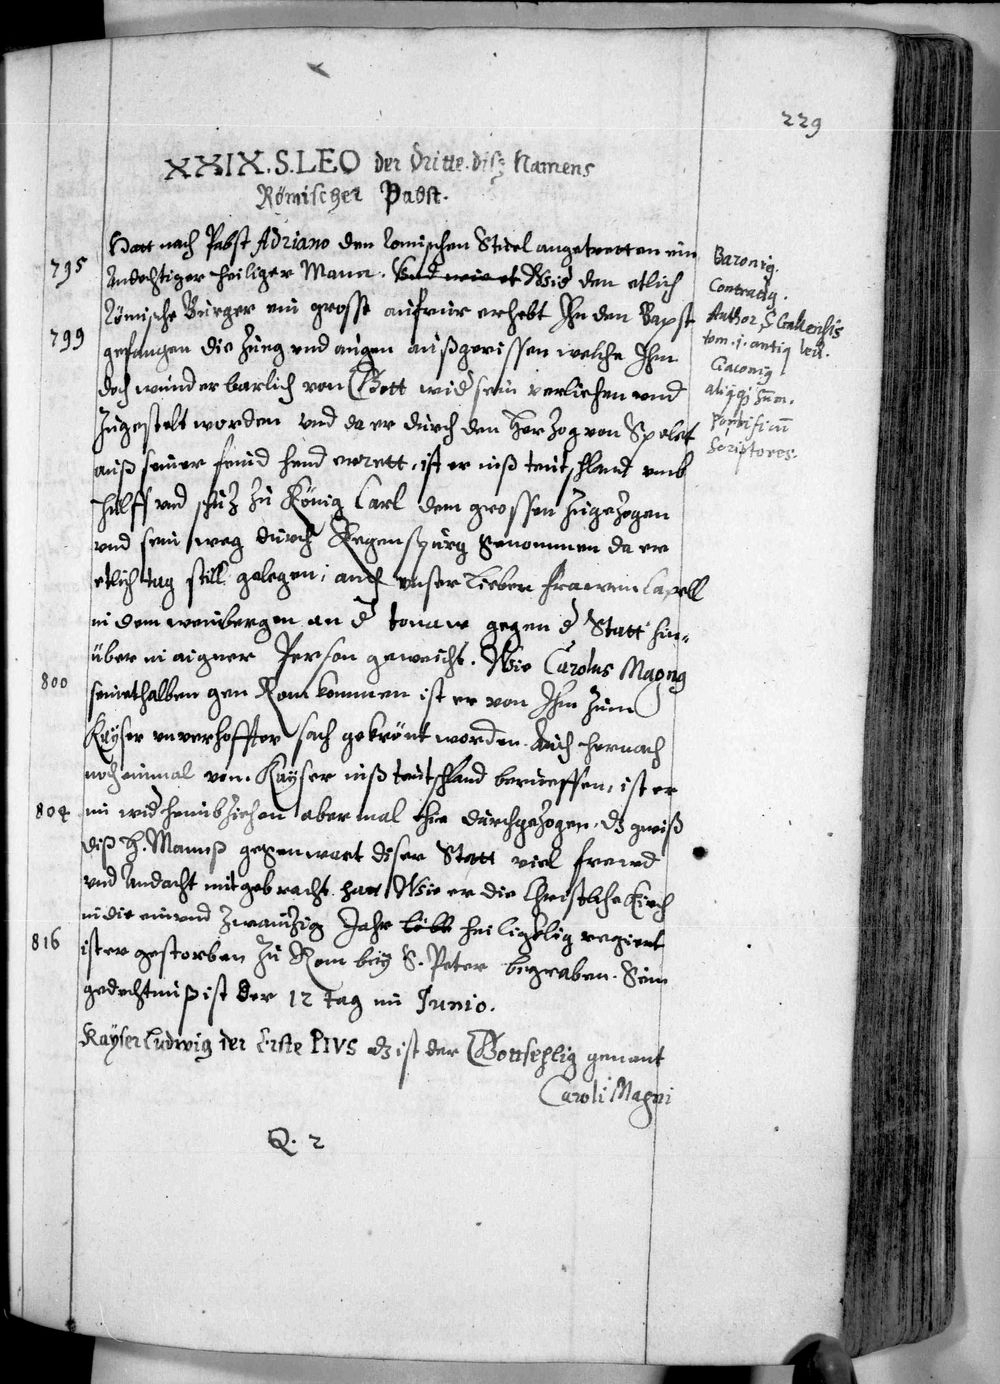 229
XXIX. S. LEO der Dritte. diß Namens
Römischer Pabst.
Hatt nach Pabst Adriano den Romischen Stuel angetretten ein
795
Andechtiger heiliger Mann. Vnd wie er Wid den etlich
Römische Burger ein grosse aufruer erhebt Ihn den Bapst
799
gefangen die Zung vnd augen außgerissen welche Ihm
doch wunderbarlich von Gott wid sein verliehen vnd
Zugestelt worden vnd da er durch den Herzog von Spolet
auß seiner feind hend errett, ist er inß teutschland vmb
hülff vnd schuz zu König Carl dem grossen zugezogen
vnd sein weg durch Regenspurg genommen da er
etlich tag still gelegen, auch vnser Lieben frawen Capell
in dem weinbergen an d tonaw gegen d Statt hin-
über in aigner Person geweicht. Wie Carolus Magnus
800
seinethalben gen Rom kommen ist er von Ihm zum
Kayser vnverhoffter sach gekrönt worden. Auch hernach
noch einmal vom Kayser inß teutschland berueffen, ist er
804
im wid heimbziehen abermal hie durchgezogen, dz gwiß
diß H. Manß gegenwart diser Statt viel frewd
vnd Andacht mitgebracht hatt Wie er die Christliche Kirch
in die ein vnd zwainzig Jahr löbl heiligklig regiert
816
ist er gestorben zu Rom bey S. Peter begraben. Sein
gedechtnuß ist der 12 tag im Junio.
Kayser Ludwig der Erste PIVS dz ist der Gottsehlig genant
Caroli Magni
Q. 2
Baronig.
Contractg.
Author S Gallensis
tom. i. antiq lect.
Ciaconig
aliiqj
Pontificū
Scriptores.